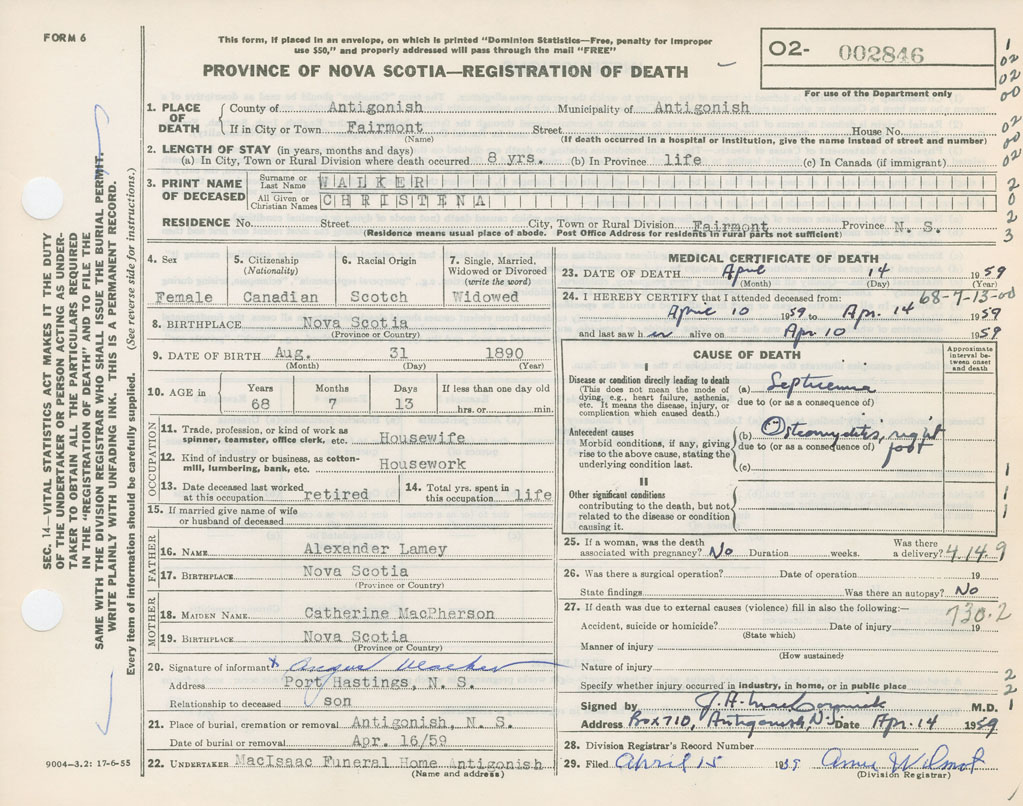 FORM 6
This form, if placed in an envelope, on which is printed "Dominion Statistics—Free, penalty for improper
use $50," and properly addressed will pass through the mail "FREE"
PROVINCE OF NOVA SCOTIA—REGISTRATION OF DEATH
O2- 002846
For use of the Department only
1. PLACE OF DEATH County of Antigonish Municipality of Antigonish
If in City or Town Fairmont Street House No.
(Name) (If death occurred in a hospital or institution, give the name instead of street and number)
2. LENGTH OF STAY (in years, months and days)
(a) In City, Town or Rural Division where death occurred 8 yrs. (b) In Province life (c) In Canada (if immigrant)
3. PRINT NAME OF DECEASED Surname or Last Name WALKER
All Given or Christian Names CHRISTENA
RESIDENCE No. Street City, Town or Rural Division Fairmont Province N. S.
(Residence means usual place of abode. Post Office Address for residents in rural parts not sufficient)
4. Sex Female
5. Citizenship (Nationality) Canadian
6. Racial Origin Scotch
7. Single, Married, Widowed or Divorced (write the word) Widowed
8. BIRTHPLACE Nova Scotia
(Province or Country)
9. DATE OF BIRTH Aug. 31 1890
(Month) (Day) (Year)
10. AGE in Years 68 Months 7 Days 13 If less than one day old hrs. or min.
OCCUPATION
11. Trade, profession, or kind of work as spinner, teamster, office clerk, etc. Housewife
12. Kind of industry or business, as cotton-mill, lumbering, bank, etc. Housework
13. Date deceased last worked at this occupation retired
14. Total yrs. spent in this occupation life
15. If married give name of wife or husband of deceased
FATHER
16. NAME Alexander Lamey
17. BIRTHPLACE Nova Scotia
(Province or Country)
MOTHER
18. MAIDEN NAME Catherine MacPherson
19. BIRTHPLACE Nova Scotia
(Province or Country)
20. Signature of informant x Angus Walker
Address Port Hastings, N. S.
Relationship to deceased son
21. Place of burial, cremation or removal Antigonish, N. S.
Date of burial or removal Apr. 16/59
22. UNDERTAKER MacIsaac Funeral Home Antigonish
(Name and address)
MEDICAL CERTIFICATE OF DEATH
23. DATE OF DEATH April 14 1959
(Month) (Day) (Year)
24. I HEREBY CERTIFY that I attended deceased from: 68-7-13-00
April 10 1959 to Apr. 14 1959
and last saw her alive on Apr 10 1959
CAUSE OF DEATH
Approximate interval between onset and death
I
Disease or condition directly leading to death (a) Septicemia
(This does not mean the mode of dying, e.g., heart failure, asthenia, etc. It means the disease, injury, or complication which caused death.) due to (or as a consequence of)
Antecedent causes (b) Osteomyelitis, right foot
Morbid conditions, if any, giving rise to the above cause, stating the underlying condition last. due to (or as a consequence of)
(c)
II
Other significant conditions
contributing to the death, but not related to the disease or condition causing it.
25. If a woman, was the death associated with pregnancy? No Duration weeks. Was there a delivery? 414.9
26. Was there a surgical operation? Date of operation 19
State findings Was there an autopsy? No
27. If death was due to external causes (violence) fill in also the following:— 730.2
Accident, suicide or homicide? Date of injury 19
(State which)
Manner of injury
(How sustained)
Nature of injury
Specify whether injury occurred in industry, in home, or in public place
Signed by J. A. MacCormick M.D.
Address Box 710, Antigonish, N.S. Date Apr. 14 1959
28. Division Registrar's Record Number
29. Filed April 15 1959 Anne Wilmot
(Division Registrar)
9004—3.2: 17-6-55
SEC. 14—VITAL STATISTICS ACT MAKES IT THE DUTY
OF THE UNDERTAKER OR PERSON ACTING AS UNDER-
TAKER TO OBTAIN ALL THE PARTICULARS REQUIRED
IN THE "REGISTRATION OF DEATH" AND TO FILE THE
SAME WITH THE DIVISION REGISTRAR WHO SHALL ISSUE THE BURIAL PERMIT.
WRITE PLAINLY WITH UNFADING INK. THIS IS A PERMANENT RECORD.
Every item of information should be carefully supplied. (See reverse side for instructions.)
1
02
02
00
02
00
02
2
0
2
3
1
1
1
2
2
1